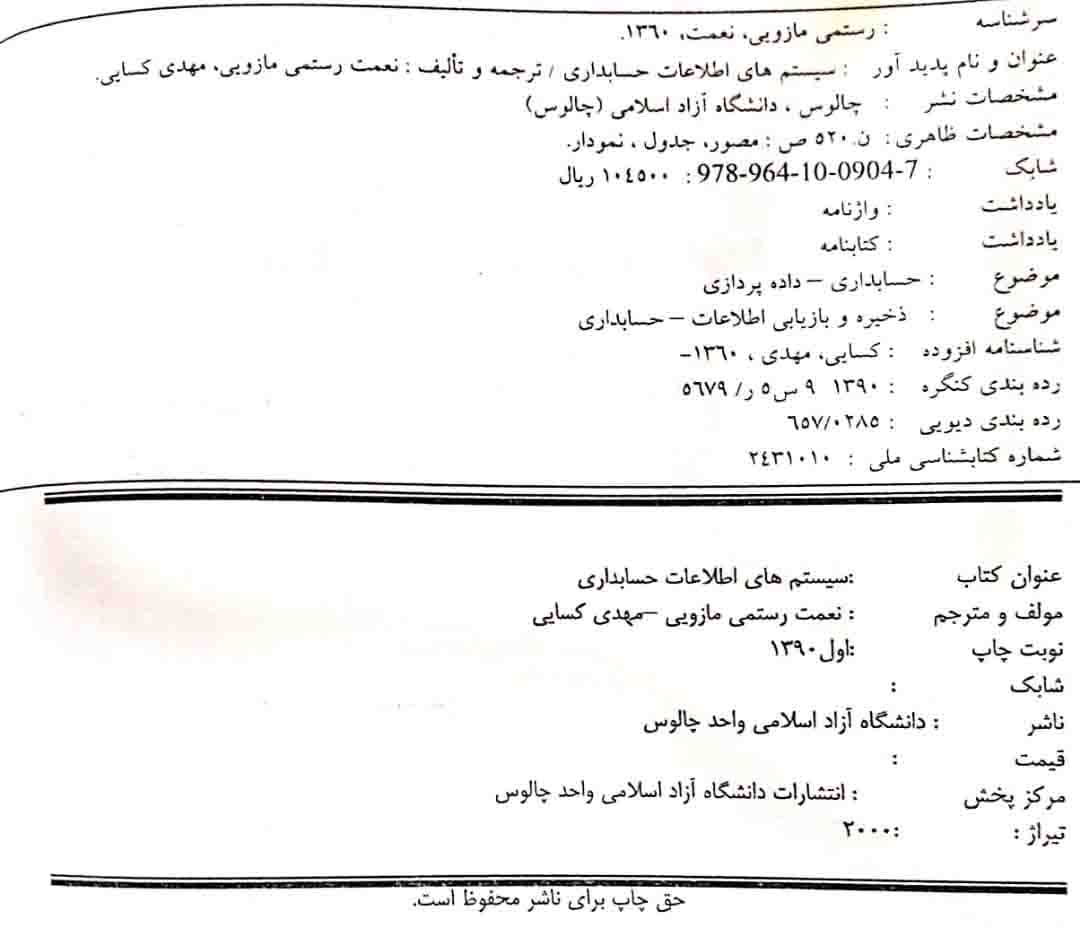 سرشناسه : رستمی مازویی، نعمت، ۱۳۶۰.
عنوان و نام پدید آور : سیستم های اطلاعات حسابداری / ترجمه و تألیف : نعمت رستمی مازویی، مهدی کسایی.
مشخصات نشر : چالوس ، دانشگاه آزاد اسلامی (چالوس)
مشخصات ظاهری : ن. ۵۲۰ ص : مصور، جدول ، نمودار.
شابک : 978-964-10-0904-7 : ۱۰٤۵۰۰ ریال
یادداشت : واژنامه
یادداشت : کتابنامه
موضوع : حسابداری – داده پردازی
موضوع : ذخیره و بازیابی اطلاعات – حسابداری
شناسنامه افزوده : کسایی، مهدی ، ۱۳۶۰–
رده بندی کنگره : ۱۳۹۰ ۹ س۵ ر/ ۵۶۷۹
رده بندی دیویی : ۶۵۷/۰۲۸۵
شماره کتابشناسی ملی : ۲٤۳۱۰۱۰
عنوان کتاب :سیستم های اطلاعات حسابداری
مولف و مترجم : نعمت رستمی مازویی –مهدی کسایی
نوبت چاپ :اول۱۳۹۰
شابک :
ناشر : دانشگاه آزاد اسلامی واحد چالوس
قیمت :
مرکز پخش : انتشارات دانشگاه آزاد اسلامی واحد چالوس
تیراژ : :۲۰۰۰
حق چاپ برای ناشر محفوظ است.